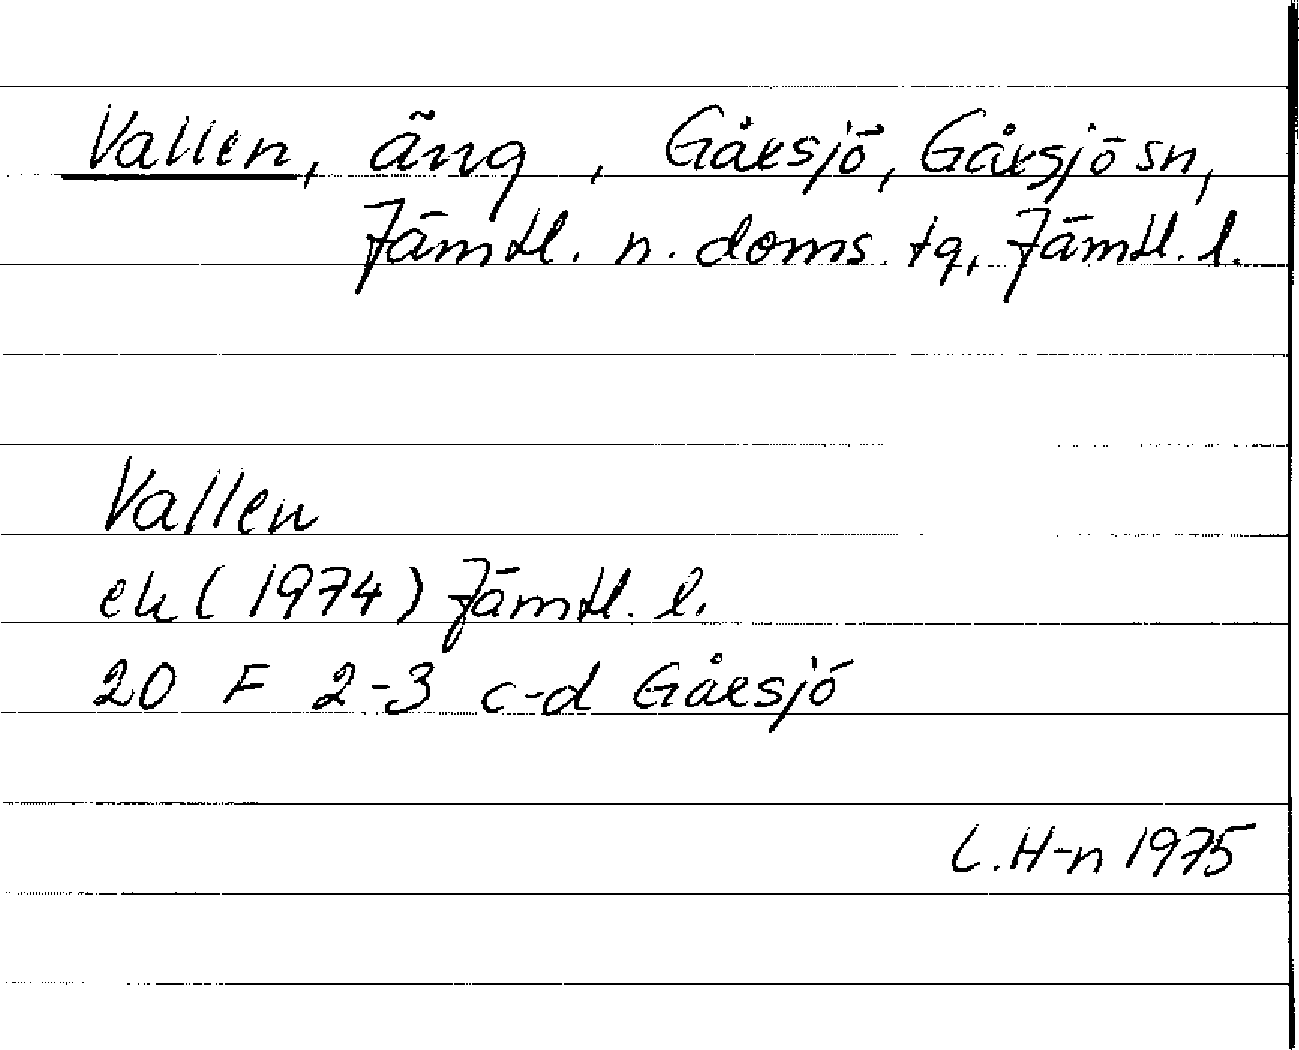 Vallen, äng, Gåxsjö, Gåxsjö sn,
Jämtl. n. doms. tg, Jämtl. l.
Vallen
ek (1974) Jämtl. l.
20 F 2-3 c-d Gåxsjö
L.H-n 1975